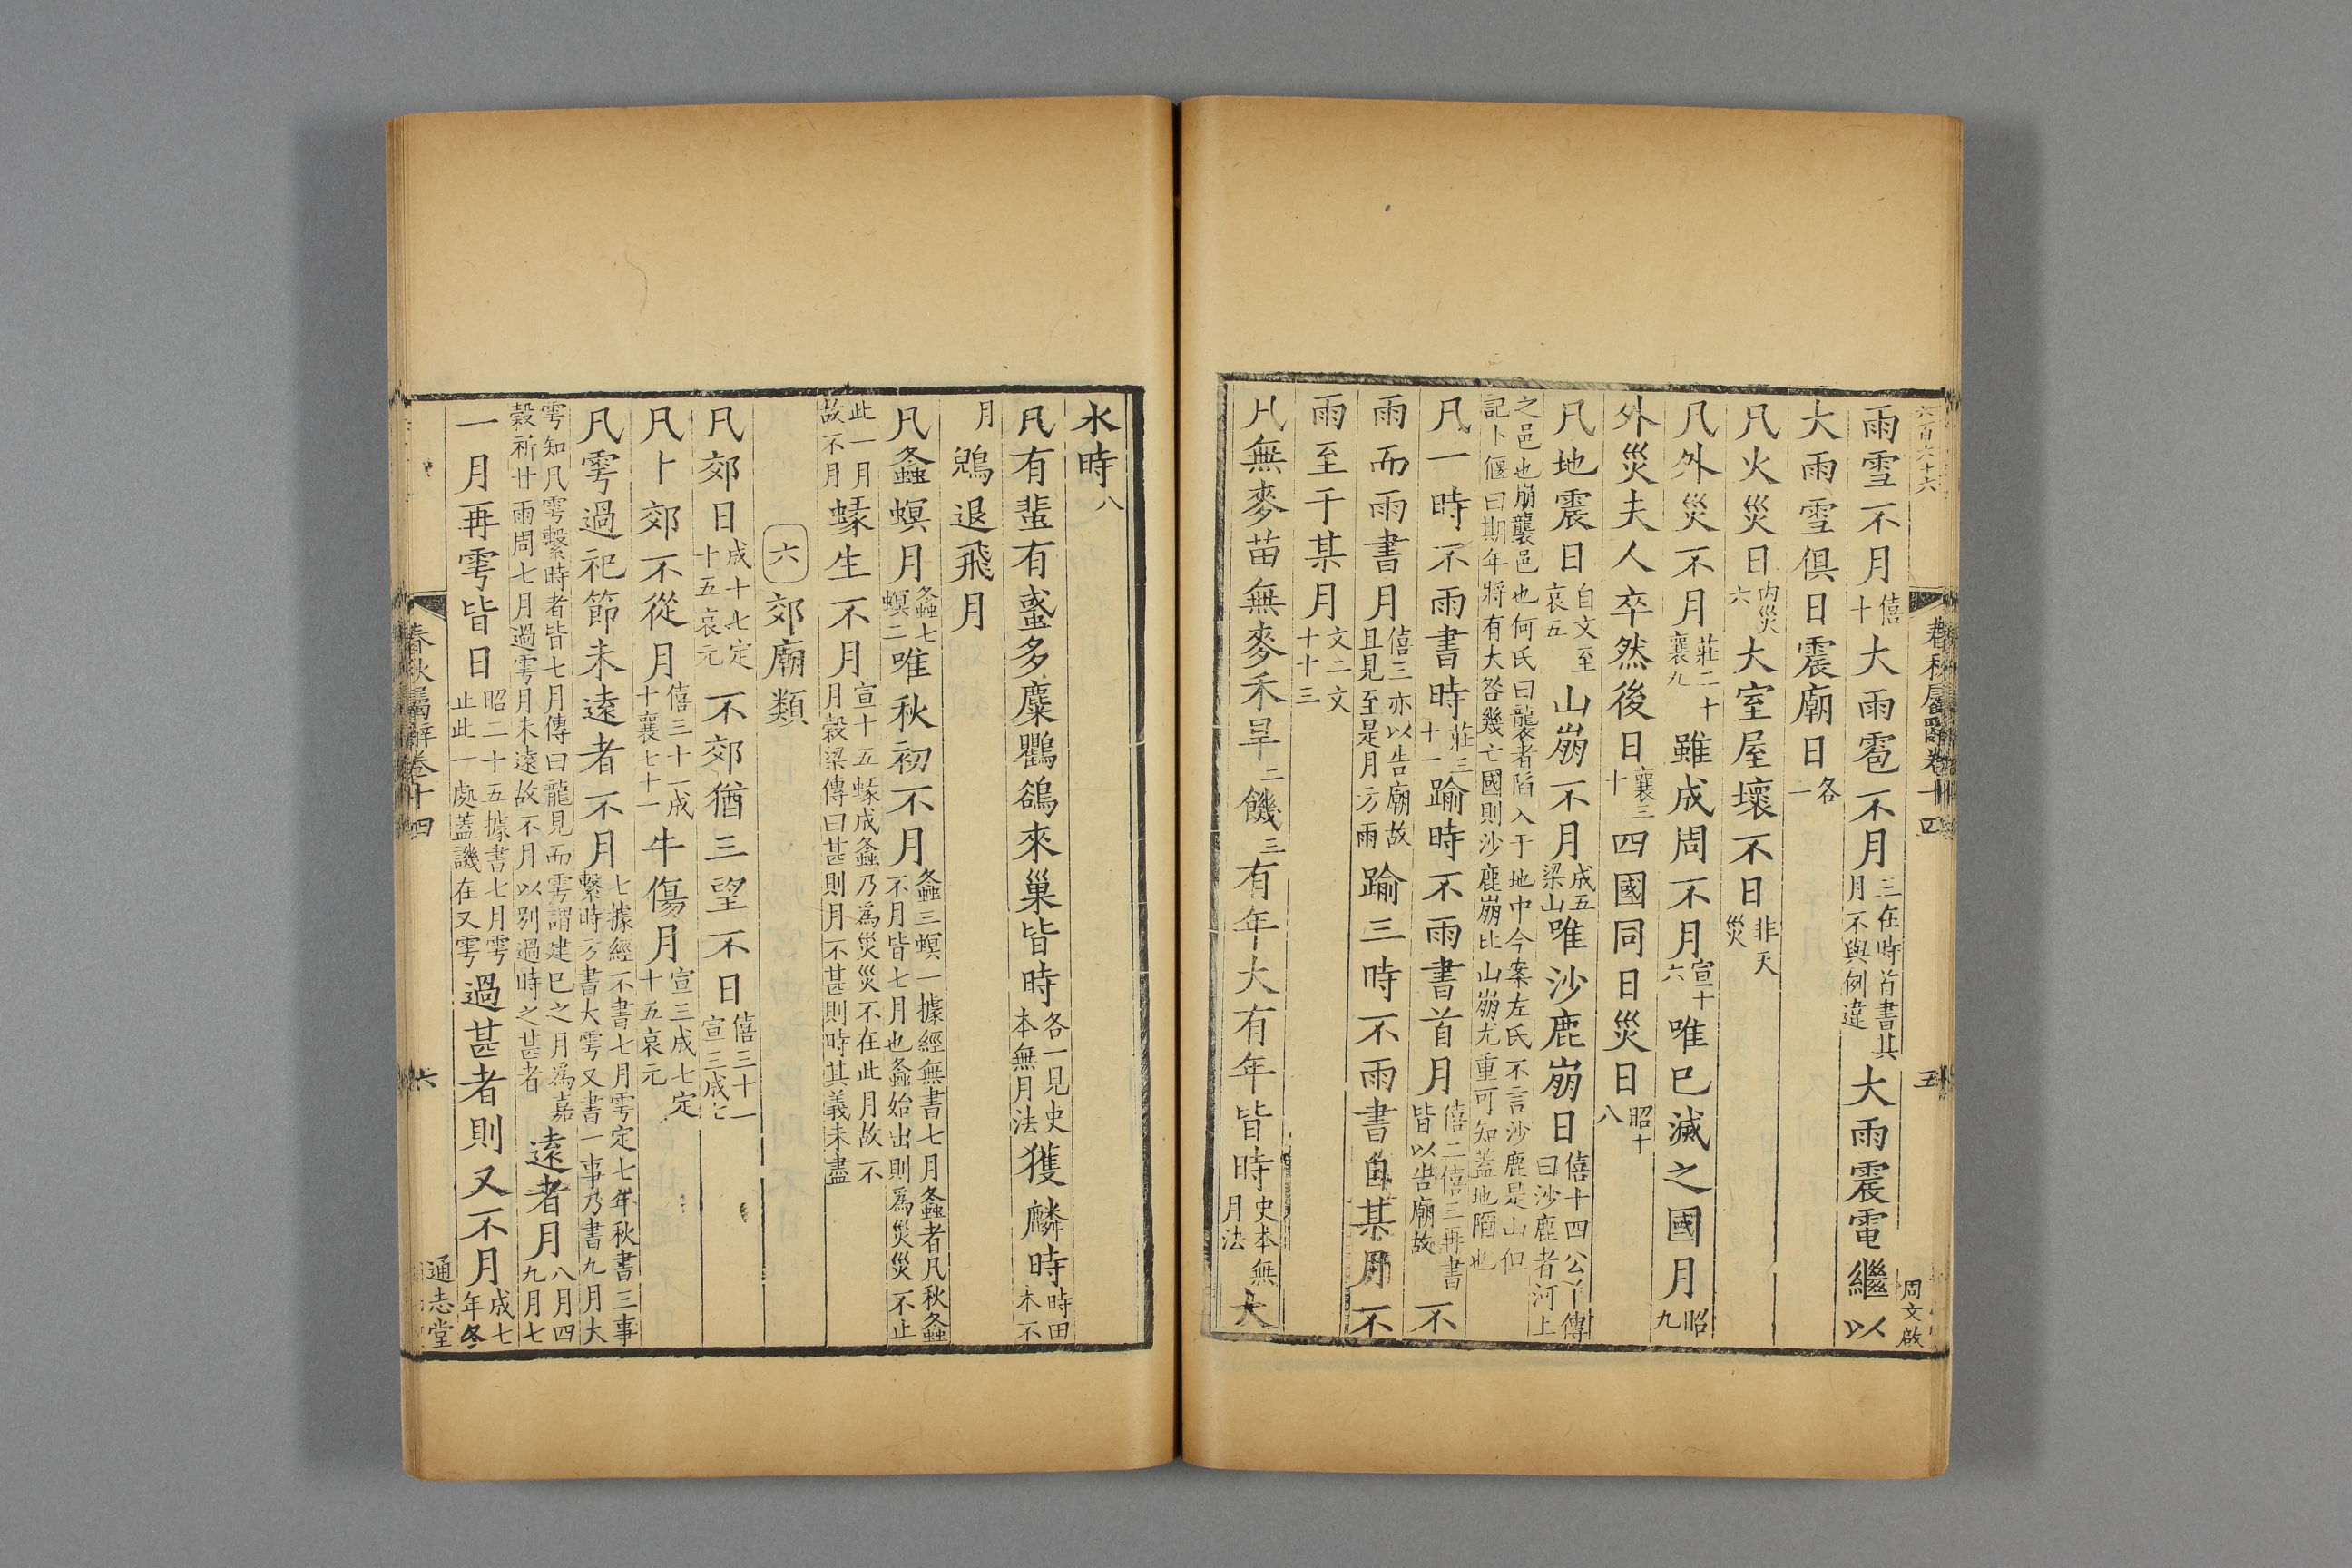 六百六十六
春秋屬辭卷十四
五
周文啟
雨雪不月僖十大雨雹不月三在時首書其月不與例違大雨震電繼以
大雨雪俱日震廟日各一
凡火災日内災六大室屋壞不日非天災
凡外災不月莊二十襄九雖成周不月宣十六唯巳滅之國月昭九
外災夫人卒然後日襄三十四國同日災日昭十八
凡地震日自文至哀五山崩不月成五梁山唯沙鹿崩日僖十四公丫傳曰沙鹿者河上
之邑也崩襲邑也何氏曰襲者陷入于地中今案左氏不言沙鹿是山但
記卜偃曰期年將有大咎幾亡國則沙鹿崩比山崩尤重可知蓋地陷也
凡一時不雨書時莊三十一踰時不雨書首月僖二僖三再書皆以告廟故不
雨而雨書月僖三亦以告廟故且見至是月方雨踰三時不雨書自某月不
雨至于某月文二文十十三
凡無麥苗無麥禾旱二饑三有年大有年皆時史本無月法大
水時八
凡有蜚有蜮多麋鸜鵒來巢皆時各一見史本無月法獲麟時時田本不
月鶂退飛月
凡螽螟月螽七螟二唯秋初不月螽三螟一據經無書七月螽者凡秋螽不月皆七月也螽始出則爲災災不止
此一月故不月蝝生不月宣十五蝝成螽乃爲災災不在此月故不月穀梁傳曰甚則月不甚則時其義未盡
六郊廟類
凡郊日成十七定十五哀元不郊猶三望不日僖三十一宣三成七
凡卜郊不從月僖三十一成十襄七十一牛傷月宣三成七定十五哀元
凡雩過祀節未遠者不月七據經不書七月雩定七年秋書三事繫時方書大雩又書一事乃書九月大
雩知凡雩繫時者皆七月傳曰龍見而雩謂建巳之月爲嘉穀祈甘雨周七月過雩月未遠故不月以别過時之甚者遠者月八月四九月七
一月再雩皆日昭二十五據書七月雩止此一處蓋譏在又雩過甚者則又不月成七年冬
春秋屬辭卷十四
六
通志堂